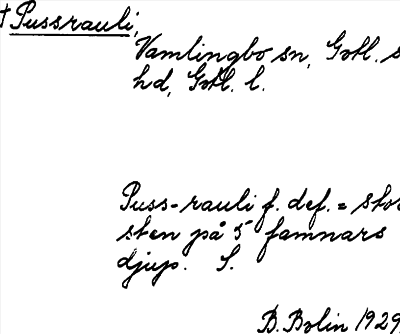 †Pussrauli,
Vamlingbo sn, Gotl. s
hd, Gotl. l.
Puss-rauli f. def. = stor
sten på 5 famnars
djup. S.
B. Bolin 1929